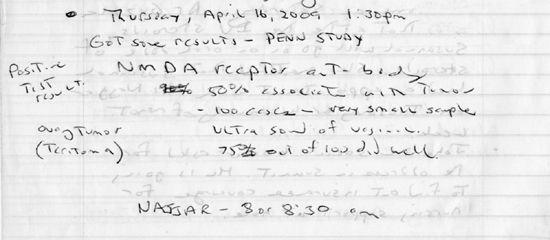 • Thursday, April 16, 2009 1:30pm
Got some results - PENN STUDY
Positive NMDA receptor anti-body
Test result. 50% associate with tumor
- 100 cases - very small sample
ovary tumor Ultra sound of
(Teritoma) 75% out of 100 did well.
NAJJAR - 8 or 8:30 am